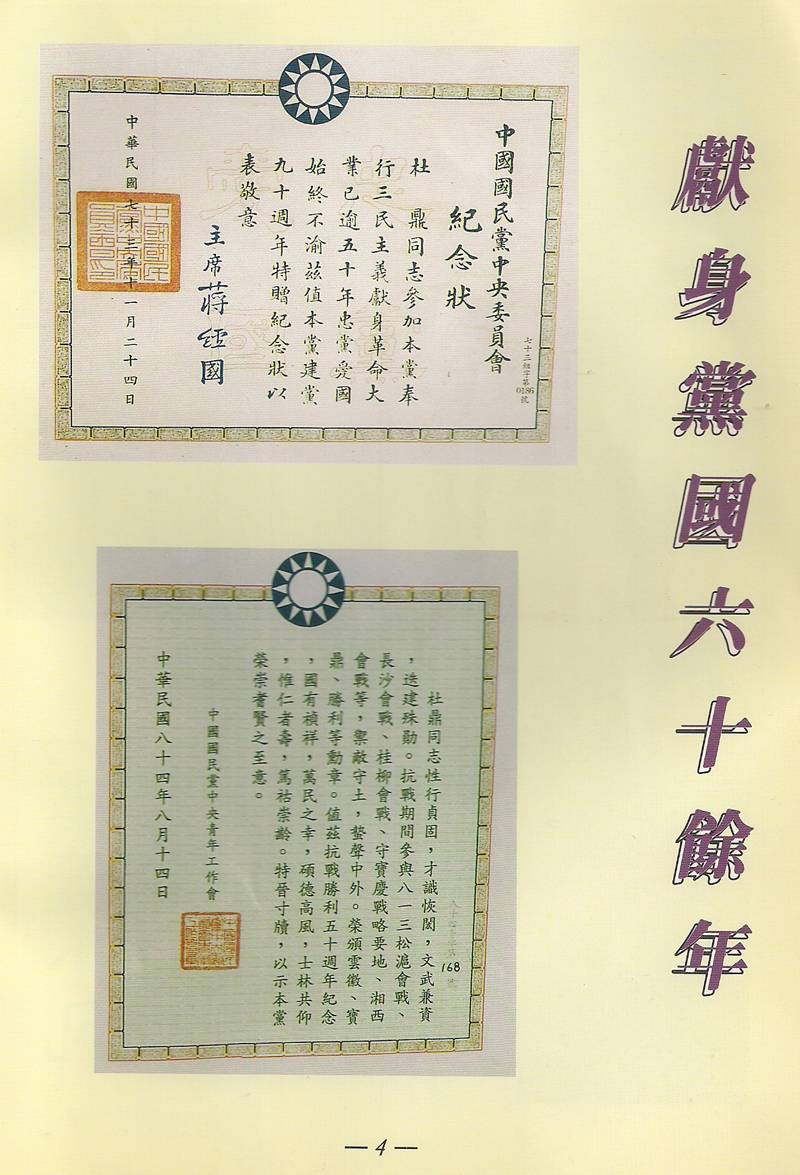 獻身黨國六十餘年
中國國民黨中央委員會
紀念狀
七十三組字第0186號
杜　鼎同志參加本黨奉
行三民主義獻身革命大
業已逾五十年忠黨愛國
始終不渝茲值本黨建黨
九十週年特贈紀念狀以
表敬意
主席 蔣經國
中華民國七十三年十一月二十四日
168
杜鼎同志性行貞固，才識恢閎，文武兼資
，迭建殊勛。抗戰期間參與八一三松滬會戰、
長沙會戰、桂柳會戰、守寶慶戰略要地、湘西
會戰等，禦敵守土，蜚聲中外。榮頒雲徽、寶
鼎、勝利等勳章。值茲抗戰勝利五十週年紀念
，國有禎祥，萬民之幸，碩德高風，士林共仰
，惟仁者壽，篤祜崇齡。特晉寸牘，以示本黨
榮崇耆賢之至意。
中國國民黨中央青年工作會
中華民國八十四年八月十四日
— 4 —